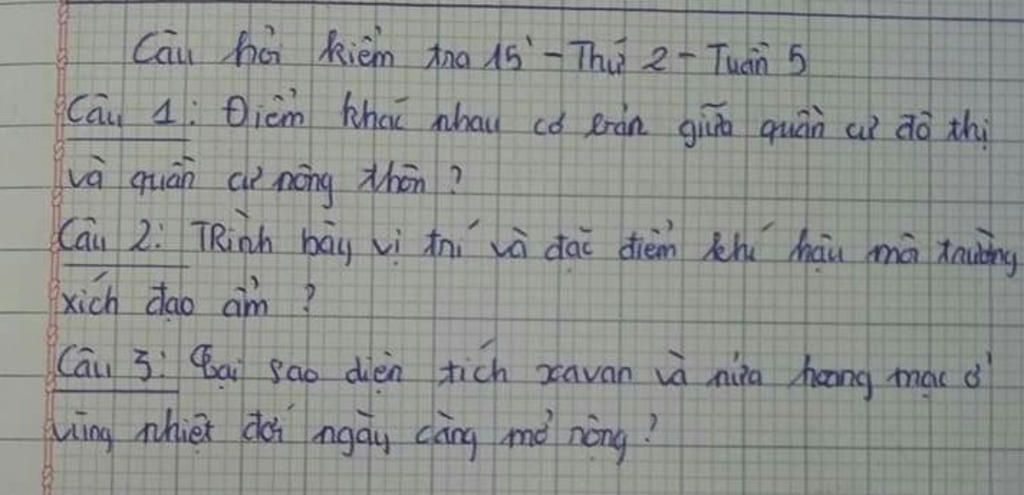 Câu hỏi kiểm tra 15' - Thứ 2 - Tuần 5
Câu 1: Điểm khác nhau cơ bản giữa quần cư đô thị
và quần cư nông thôn ?
Câu 2: TRình bày vị trí và đặc điểm khí hậu môi trường
xích đạo ẩm ?
Câu 3: Tại sao diện tích xavan và nửa hoang mạc ở
vùng nhiệt đới ngày càng mở rộng ?